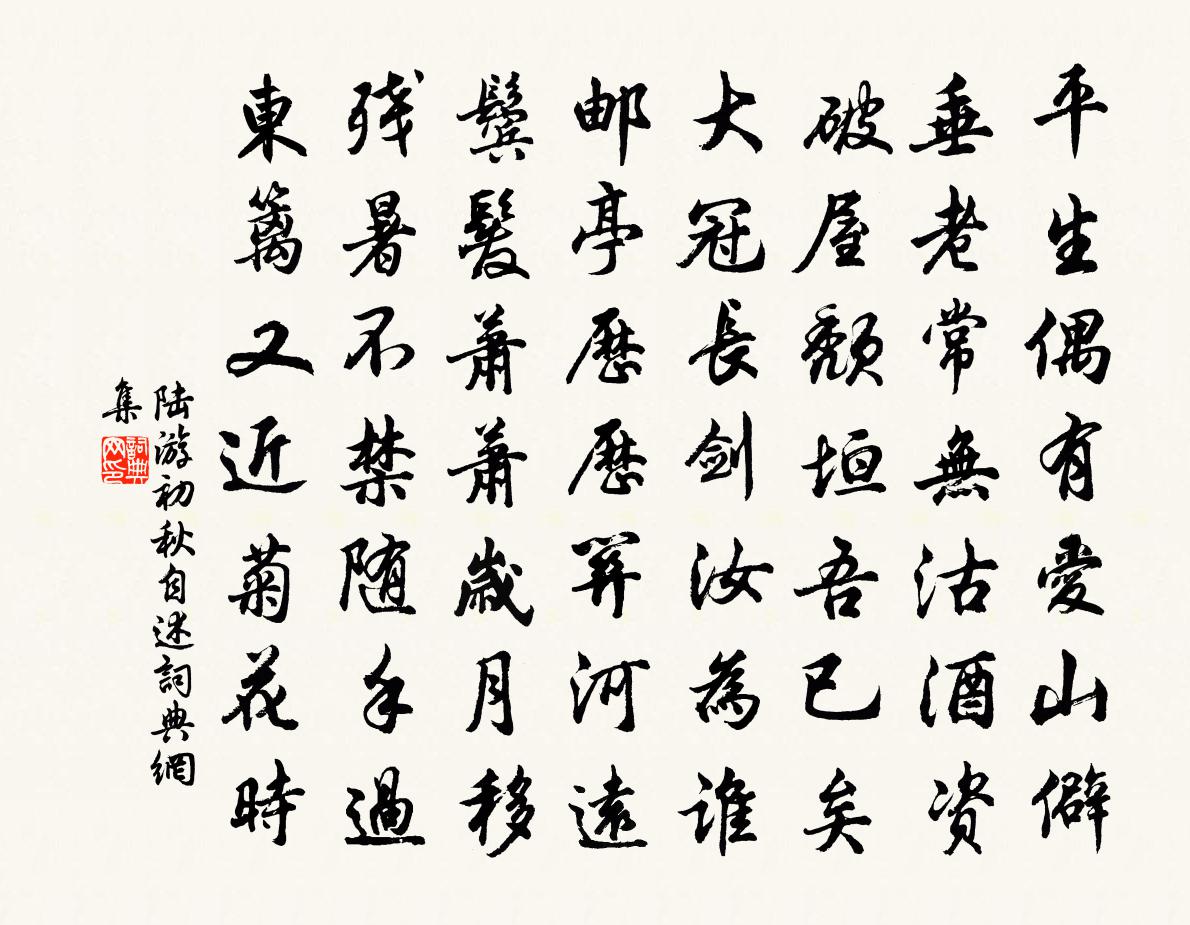 平生偶有愛山僻
垂老常無沽酒资
破屋頹垣吾已矣
大冠長剑汝為誰
邮亭歷歷關河遠
鬓髮蕭蕭歲月移
残暑不禁随手過
東篱又近菊花時
陆游初秋自述詞典網
集
詞典网印